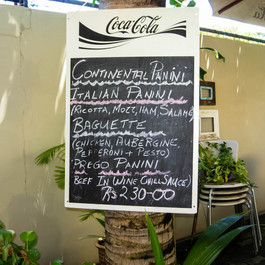 Coca-Cola
CONTINENTAL PANINI
ITALIAN PANINI
(RICOTTA, MOZZ, HAM, SALAME)
BAGUETTE
(CHICKEN, AUBERGINE,
PEPPERONI + PESTO)
PREGO PANINI
BEEF IN WINE CHILLI SAUCE)
RS 230-00